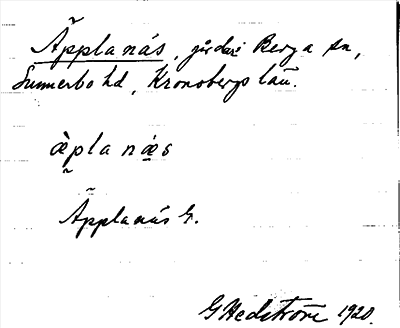 Äpplanäs, gårdar i Berga sn,
Sunnerbo hd, Kronobergs län.
ὰ̰pla nǽ̱s
Äpplanäs G.
G Hedström 1920.